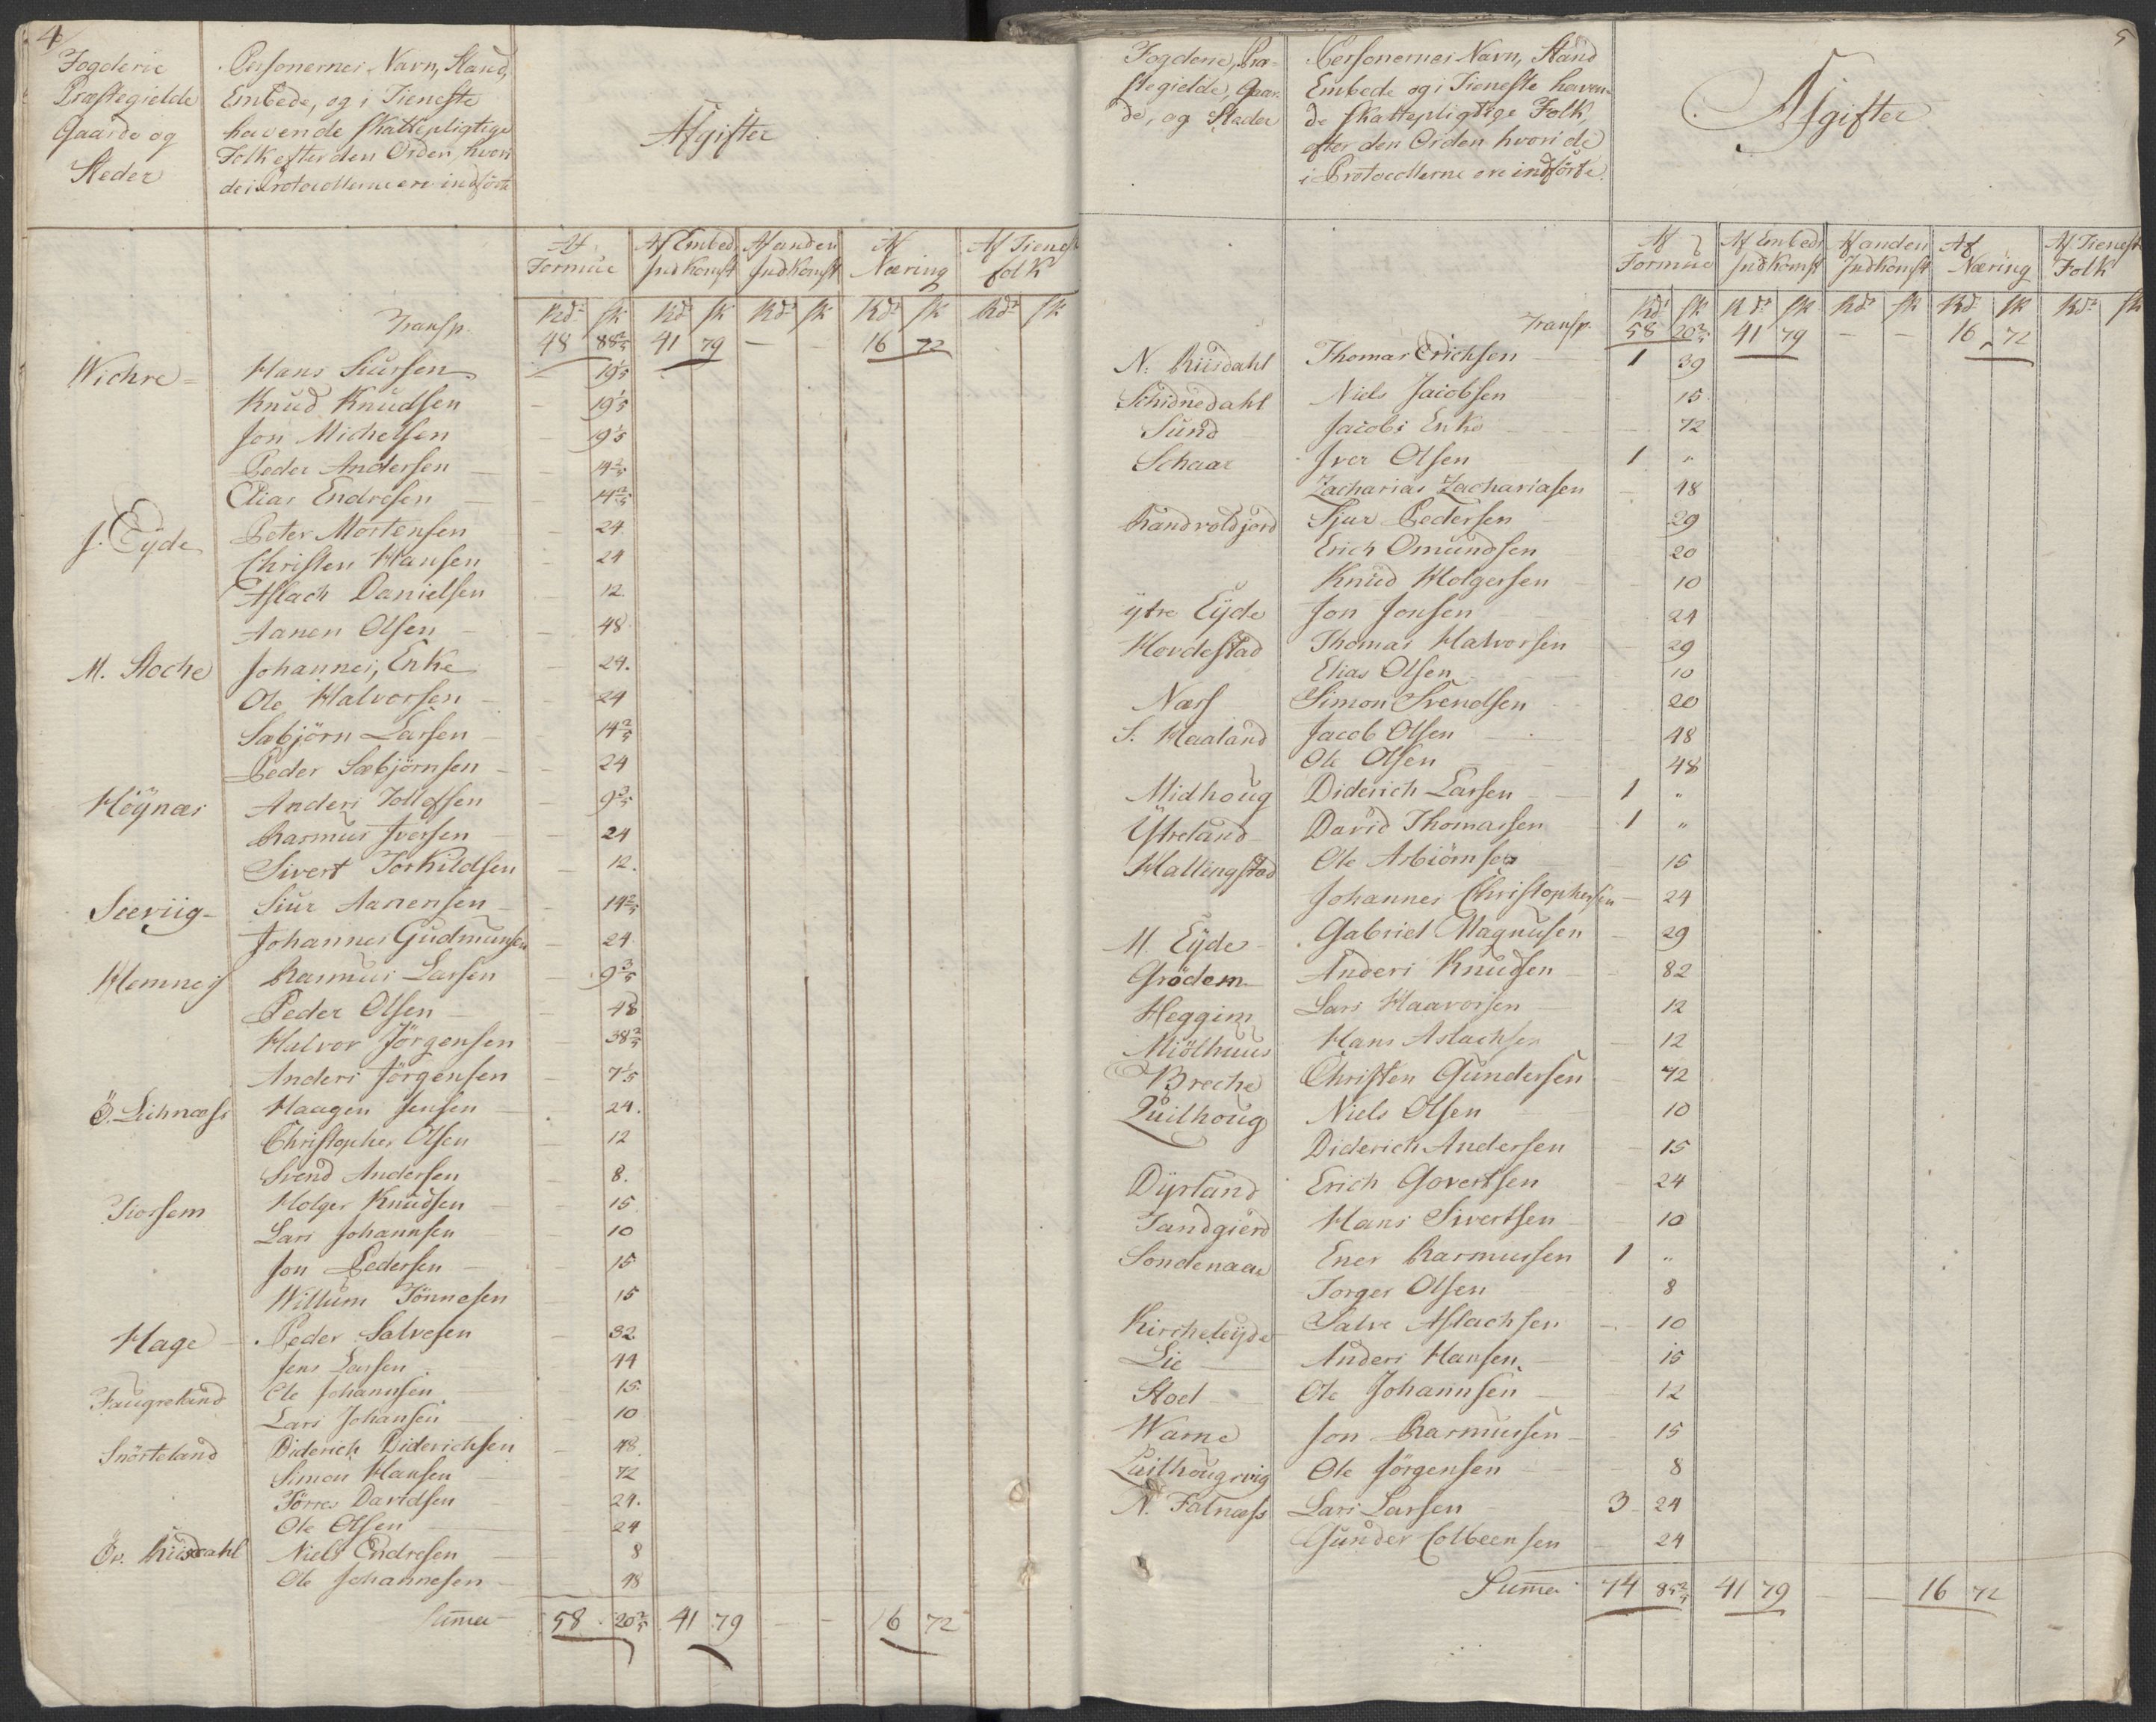 4
Fogderie
Præstegielde
Gaarde og
Steder
Personernes Navn, Stand,
Embede, og i Tieneste
havende skattepligtige
Folk efter den Orden, hvori
de i Protocollerne ere indførte
Afgifter
Af Formue
Af Embeds Indkomst
Af anden Indkomst
Af Næring
Af Tieneste folk
Rdr sk Rdr sk Rdr sk Rdr sk Rdr sk
Transp. 48 88 2/5 41 79 — — 16 72
Wichre Hans Siursen — 19 1/5
Knud Knudsen — 19 1/5
Jon Michelsen — 19 1/5
Peder Andersen — 14 2/5
Elias Endresen — 14 2/5
J. Eÿde Peter Mortensen — 24
Christen Hansen — 24
Aslach Danielsen — 12
Aanen Olsen — 48
M. Stoche Johannes, Enke — 24.
Ole Halvorsen — 24
Sæbjörn Larsen — 14 2/5
Peder Sæbjörnsen — 24
Höÿnæs Anders Tollefsen — 9 3/5
Rasmus Iversen — 24
Sivert Torkildsen — 12.
Seeviig Siur Aanensen — 14 2/5
Johannes Gudmunsen — 24
Hemnes Rasmus Larsen — 9 3/5
Peder Olsen — 48
Halvor Jörgensen — 38 2/5
Anders Jörgensen — 7 1/5
Ö. Leihnæss Haagen Jensen — 24.
Christopher Olsen — 12
Svend Andersen — 8.
Tiorsem Holger Knudsen — 15
Lars Johannsen — 10
Jon Pedersen — 15
Willum Tönnesen — 15
Hage Peder Salvesen — 32
Jens Larsen — 44
Faugreland Ole Johannsen — 15
Lars Johansen — 10
Snörteland Diderich Diderichsen — 48.
Simon Hansen — 72
Törres Davidsen — 24.
Ole Olsen — 24
Öv. Riisdahl Niels Endresen — 8
Ole Johannesen — 48
Summa 58 20 2/5 41 79 — — 16 72
5
Fogderie, Præ-
stegielde, Gaar-
de, og Stæder
Personernes Navn, Stand
Embede og i Tieneste haven-
de skattepligtige Folk,
efter den Orden hvori de
i Protocollerne ere indförte.
Afgifter
Af Formue
Af Embeds Indkomst
Af anden Indkomst
Af Næring
Af Tieneste Folk
Rdr sk Rdr sk Rdr sk Rdr sk Rdr sk
Transp. 58 20 2/5 41 79 — — 16 72
N. Riisdahl Thomas Erichsen — 1 39
Schidnedahl Niels Jacobsen 15
Sund Jacobs Enke 72
Schaar Iver Olsen 1 "
Zacharias Zachariasen — 48
Randvoldjord Sjur Pedersen 29
Erich Omundsen 20
Knud Holgersen 10
ÿtre Eÿde Jon Jonsen 24
Hovdestad Thomas Halvorsen 29
Elias Olsen 10
Næss Simon Svendsen 20
S. Haaland Jacob Olsen 48
Ole Olsen 48
Midhoug Diderich Larsen — 1 "
Ytreland David Thomassen 1 "
Hallingstad Ole Asbiörnsen 15
Johannes Christophersen — 24
M. Eÿde Gabriel Magnusen — 29
Grödem Anders Knudsen — 82
Heggim Lars Haavorsen — 12
Miölhuus Hans Aslachsen — 12
Breche Christen Gundersen — 72
Quilhoug Niels Olsen 10
Diderich Andersen — 15
Dÿrland Erich Govertsen — 24
Tandgierd Hans Sivertsen — 10
Söndenaae Ener Rasmussen 1 "
Torger Olsen 8
Kircheleÿde Salve Aslachsen — 10
Lie Anders Hansen — 15
Stoel Ole Johannsen 12
Warne Jon Rasmussen — 15
Quilhougvig Ole Jörgensen — 8
N. Fatnæss Lars Larsen 3 24
Gunder Colbeensen — 24
Summa 74 85 2/5 41 79 — — 16 72